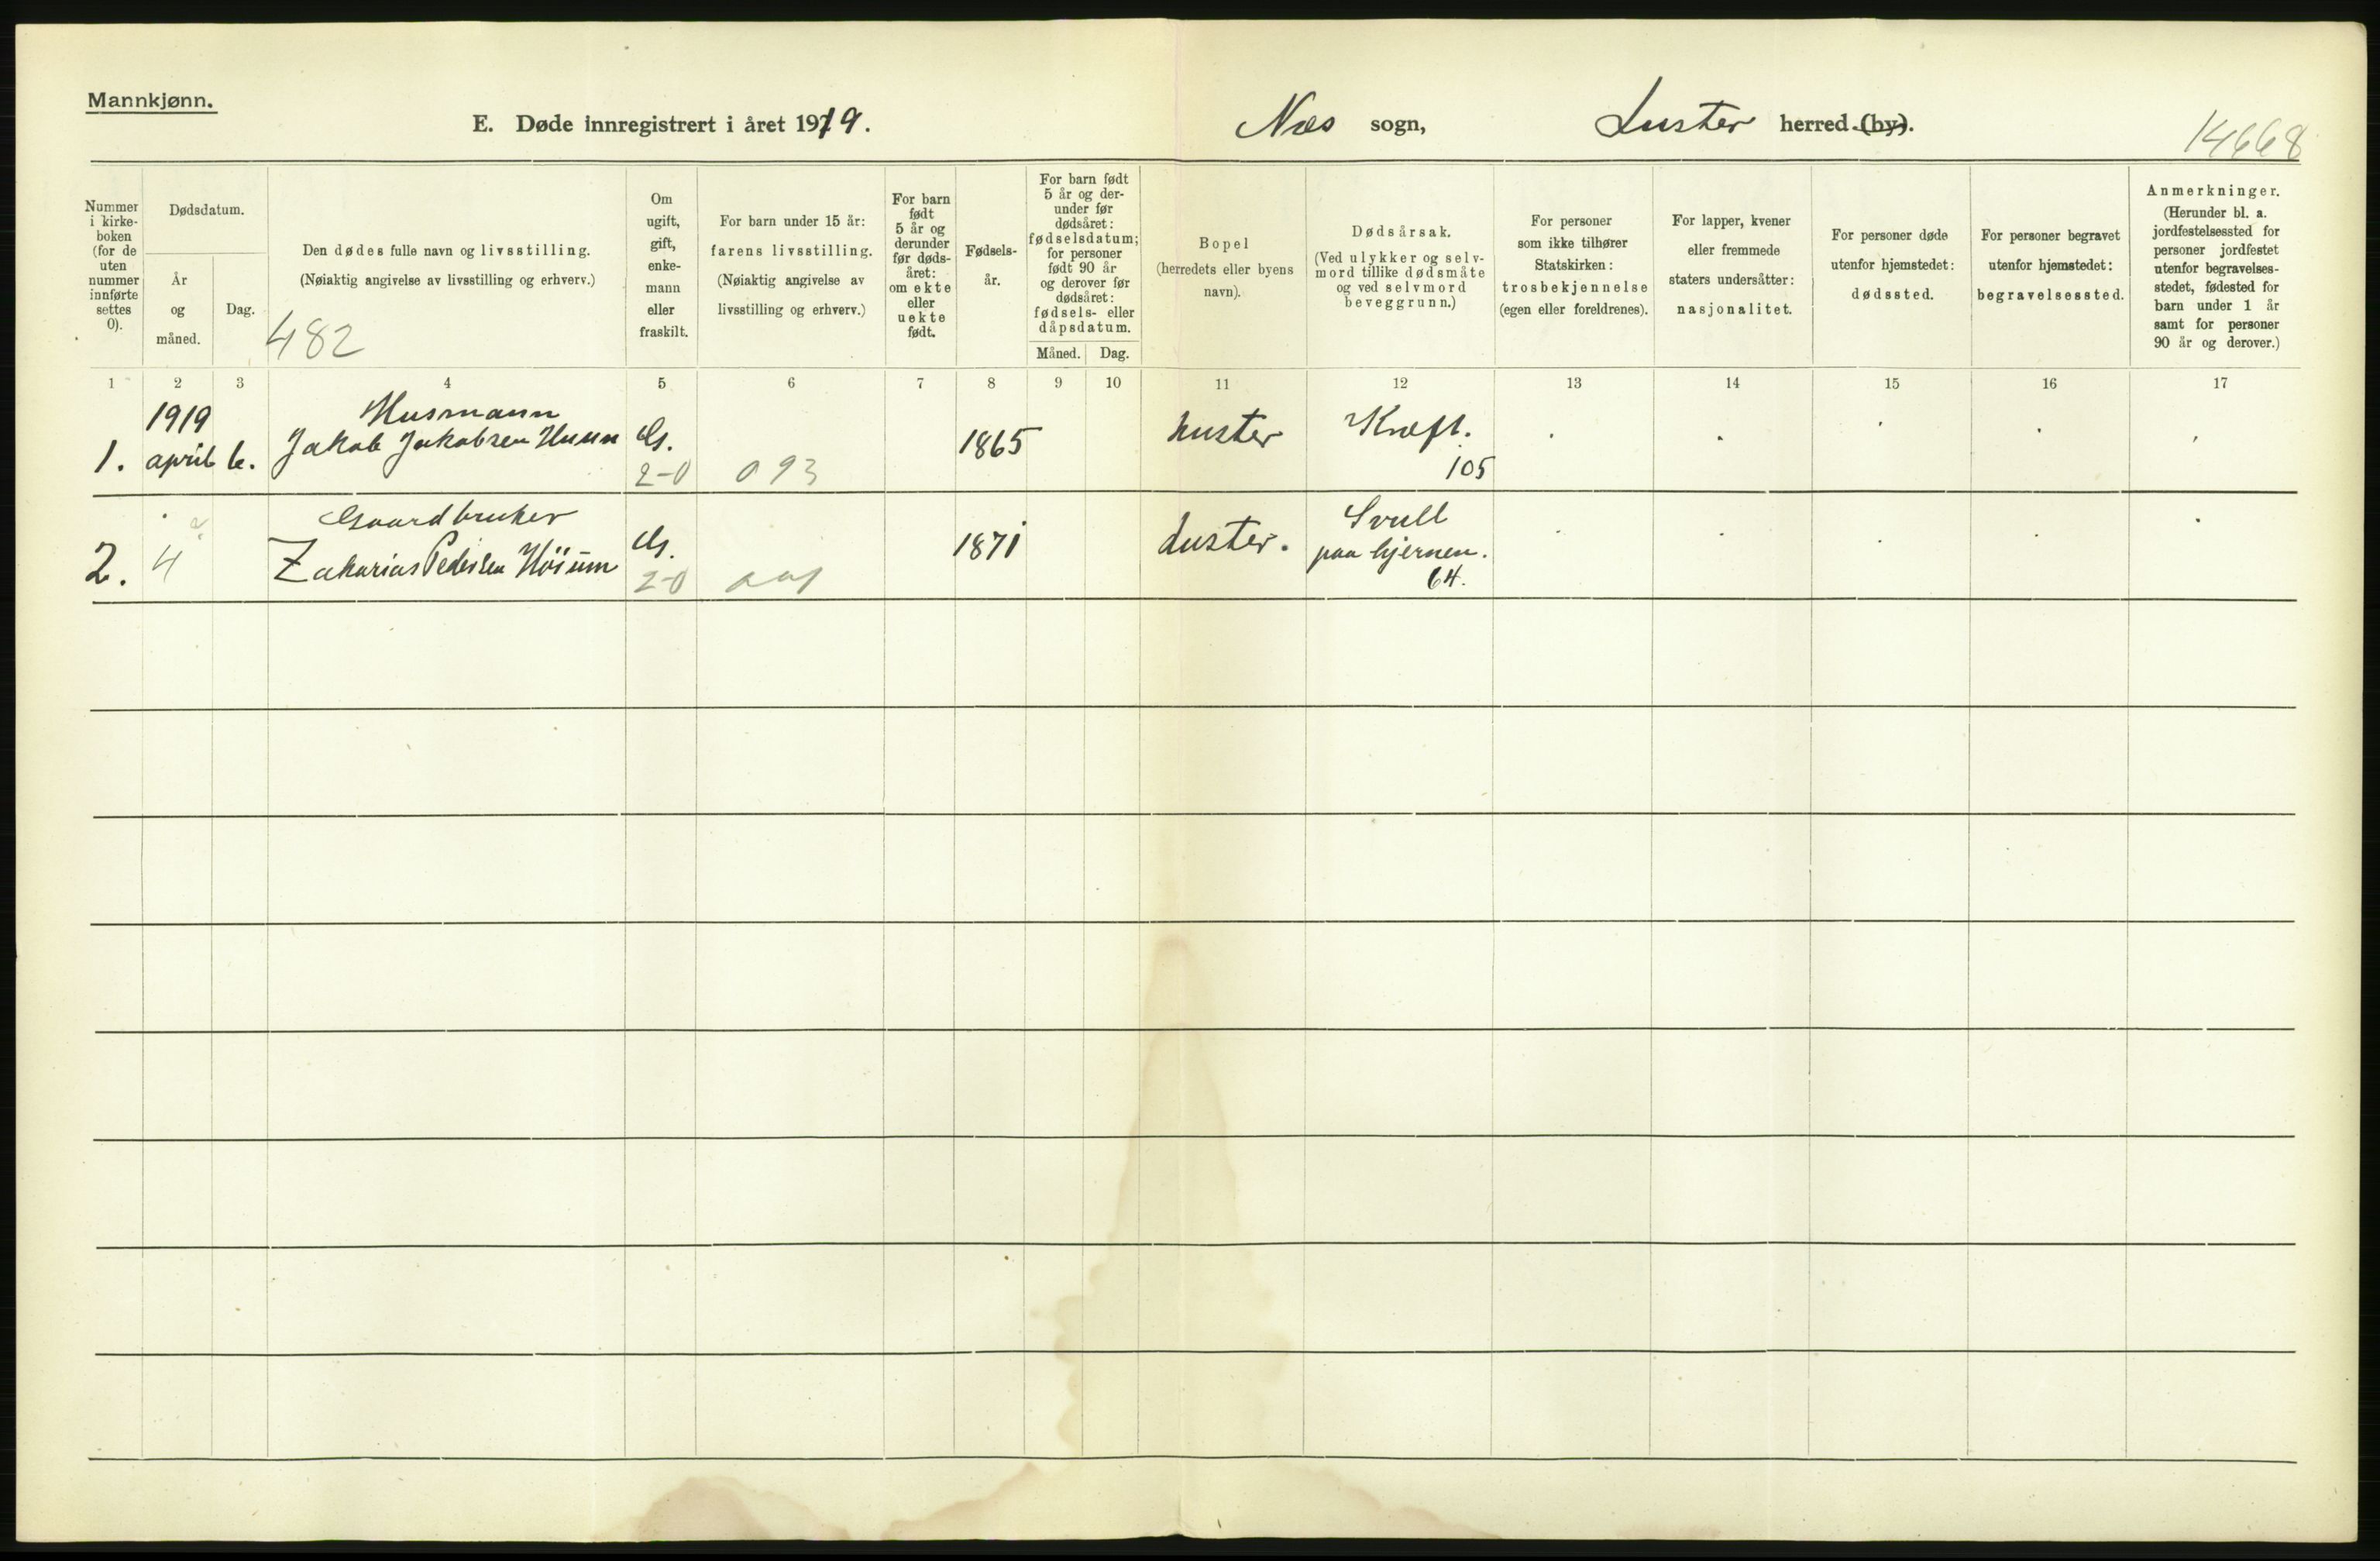 Mannkjønn.
E. Døde innregistrert i året 1919.
Næs sogn,
Luster herred (by).
14668
Nummer
i kirke-
boken
(for de
uten
nummer
innførte
settes
0).
Dødsdatum.
År
og
måned.
Dag.
Den dødes fulle navn og livsstilling.
(Nøiaktig angivelse av livsstilling og erhverv.)
482
Om
ugift,
gift,
enke-
mann
eller
fraskilt.
For barn under 15 år:
farens livsstilling.
(Nøiaktig angivelse av
livsstilling og erhverv.)
For barn
født
5 år og
derunder
før døds-
året:
om ekte
eller
uekte
født.
Fødsels-
år.
For barn født
5 år og der-
under før
dødsåret:
fødselsdatum;
for personer
født 90 år
og derover før
dødsåret:
fødsels- eller
dåpsdatum.
Måned.
Dag.
Bopel
(herredets eller byens
navn).
Dødsårsak.
(Ved ulykker og selv-
mord tillike dødsmåte
og ved selvmord
beveggrunn.)
For personer
som ikke tilhører
Statskirken:
trosbekjennelse
(egen eller foreldrenes).
For lapper, kvener
eller fremmede
staters undersåtter:
nasjonalitet.
For personer døde
utenfor hjemstedet:
dødssted.
For personer begravet
utenfor hjemstedet:
begravelsessted.
Anmerkninger.
(Herunder bl. a.
jordfestelsessted for
personer jordfestet
utenfor begravelses-
stedet, fødested for
barn under 1 år
samt for personer
90 år og derover.)
1 2 3 4 5 6 7 8 9 10 11 12 13 14 15 16 17
1919 Husmann
1. april 6. Jakob Jakobsen G. 1865 Luster Kræft.
2-0 093 105
Gaardbruker Svull
2. 4 Zakarias Pedersen Höium G. 1871 Luster. paa hjernen.
2-0 64.